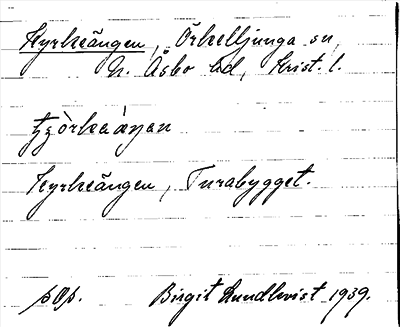 Kyrkeängen, Örkelljunga sn,
N. Åsbo hd, Krist. l.
Kyrkeängen, Turabygget.
pOp. Birgit Lundkvist 1939.